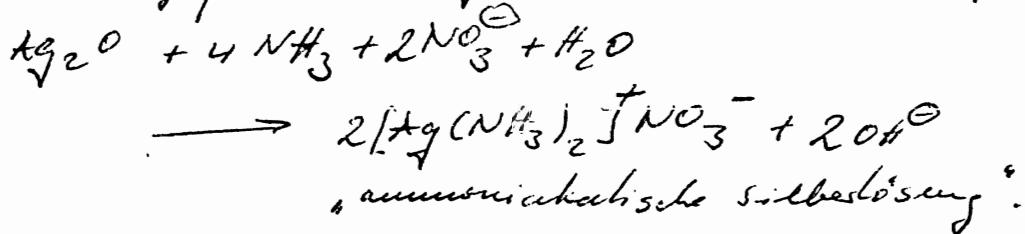 Ag₂O + 4 NH₃ + 2NO₃⊖ + H₂O
⟶ 2[Ag(NH₃)₂]⁺NO₃⁻ + 2OH⊖
„ammoniakalische Silberlösung“.